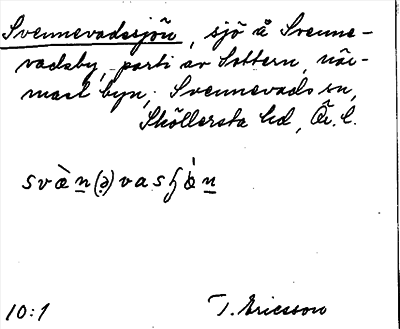 Svennevadssjön, sjö å Svenne-
vadsby, parti av Sottern, när-
mast byn, Svennevads sn,
Sköllersta hd, Ör. l.
10:1 T. Ericsson